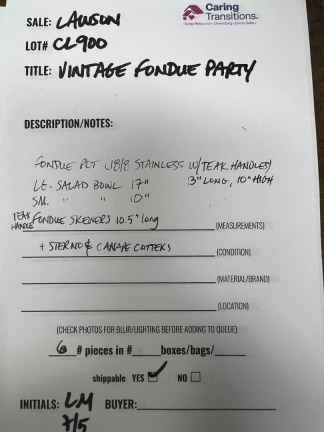 Caring
Transitions
SALE: LAWSON
LOT# CL900
TITLE: VINTAGE FONDUE PARTY
DESCRIPTION/NOTES:
FONDUE POT (18/8 STAINLESS W/TEAK HANDLES)
3" LONG, 10" HIGH
LG. SALAD BOWL 17"
SM. " " 10"
TEAK HANDLE FONDUE SKEWERS 10.5" long (MEASUREMENTS)
+ STERNO & CANAPE CUTTERS (CONDITION)
(MATERIAL/BRAND)
(LOCATION)
(CHECK PHOTOS FOR BLUR/LIGHTING BEFORE ADDING TO QUEUE)
6 # pieces in # boxes/bags/
shippable YES NO
INITIALS: LM BUYER:
7/5